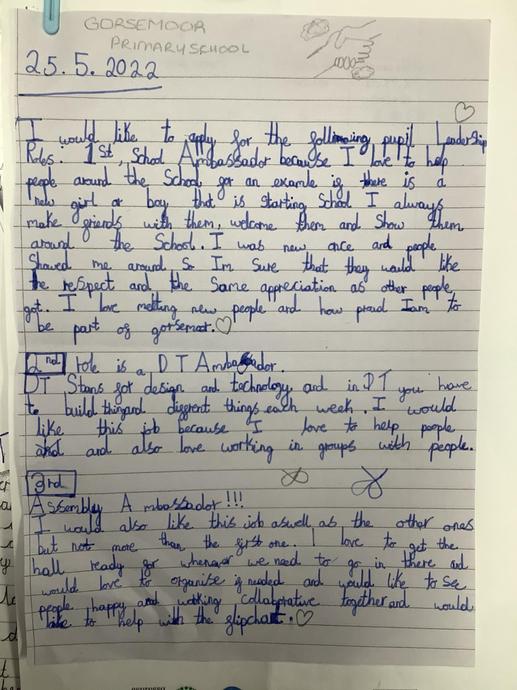 GORSEMOOR
PRIMARY SCHOOL
25.5.2022
I would like to apply for the following pupil Leadership
Roles. 1st, School Ambassador because I love to help
people around the School, for an examle if there is a
new girl or boy that is starting School I always
make friends with them, welcome them and Show them
around the School. I was new once and people
Showed me around so Im sure that they would like
the respect and the same appreciation as other people
got. I love metting new people and how proud Iam to
be part of gorsemoor.
2nd role is a DT Ambassador.
DT Stans for design and technology and in DT you have
to build thingand different things each week. I would
like this job because I love to help people
and and also love working in groups with people.
3rd
Assembly Ambassador!!!
I would also like this job aswell as the other ones
but not more than the first one. I love to get the
hall ready for whenever we need to go in there and
would love to organise if needed and would like to see
people happy and working collabrative together and would
like to help with the flipchart.